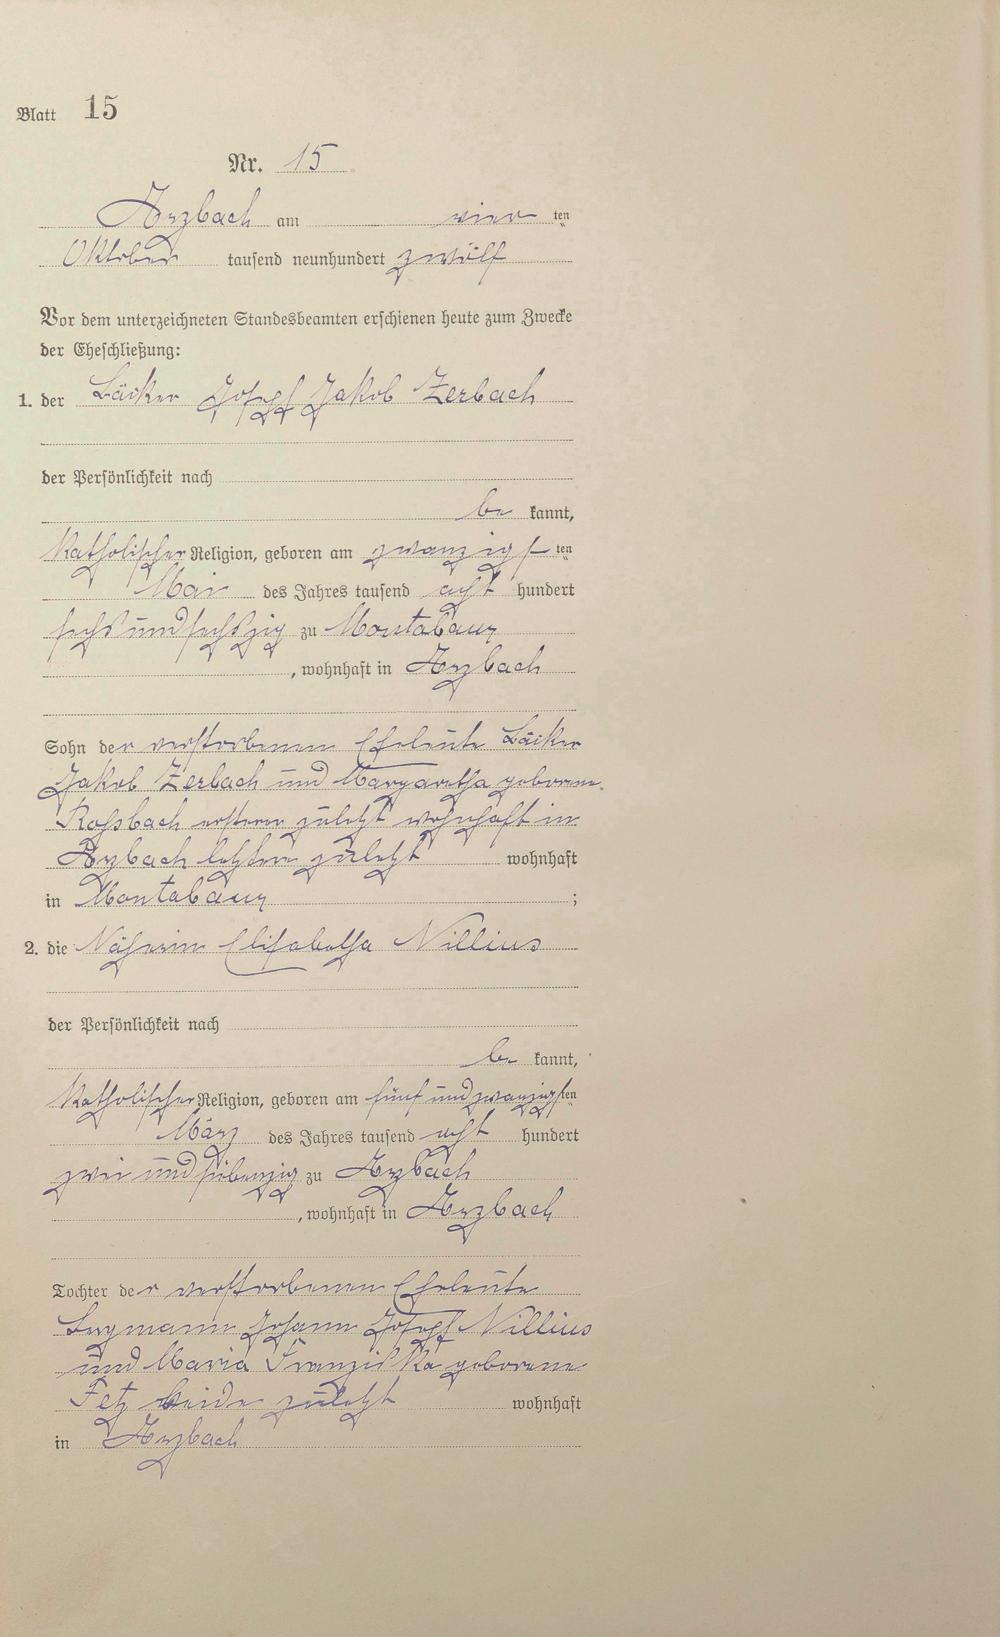 Blatt 15
Nr. 15
Arzbach am vier ten
Oktober tausend neunhundert zwölf
Vor dem unterzeichneten Standesbeamten erschienen heute zum Zwecke
der Eheschließung:
1. der Bäcker Josef Jakob Zerbach
der Persönlichkeit nach
be kannt,
katholischer Religion, geboren am zwanzigs ten
Mai des Jahres tausend acht hundert
sechs und sechszig zu Montabaur
, wohnhaft in Arzbach
Sohn der verstorbenen Eheleute Bäcker
Jakob Zerbach und Margaretha geborene
Roßbach ersterer zuletzt wohnhaft in
Arzbach letztere zuletzt wohnhaft
in Montabaur ;
2. die Näherin Elisabetha Nillius
der Persönlichkeit nach
be kannt,
katholischer Religion, geboren am fünf und zwanzigs ten
März des Jahres tausend acht hundert
zwei und siebenzig zu Arzbach
, wohnhaft in Arzbach
Tochter der verstorbenen Eheleute
Bergmann Johann Josef Nillius
und Maria Franziska geborene
Fetz beide zuletzt wohnhaft
in Arzbach